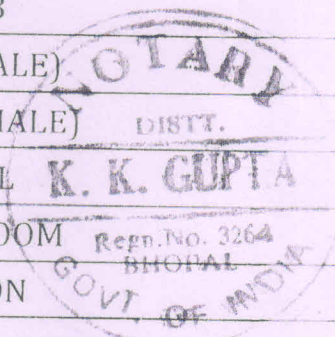 ALE)
MALE)
L
OOM
ON
NOTARY
DISTT.
K. K. GUPTA
Regn.No. 3264
BHOPAL
GOVT. OF INDIA